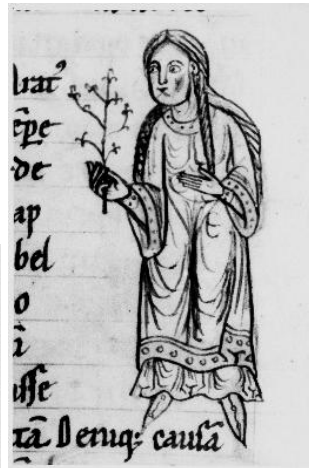 lrat᷒
ēpe
de
ap
bel
o
ā
usse
tā Deniq; causā